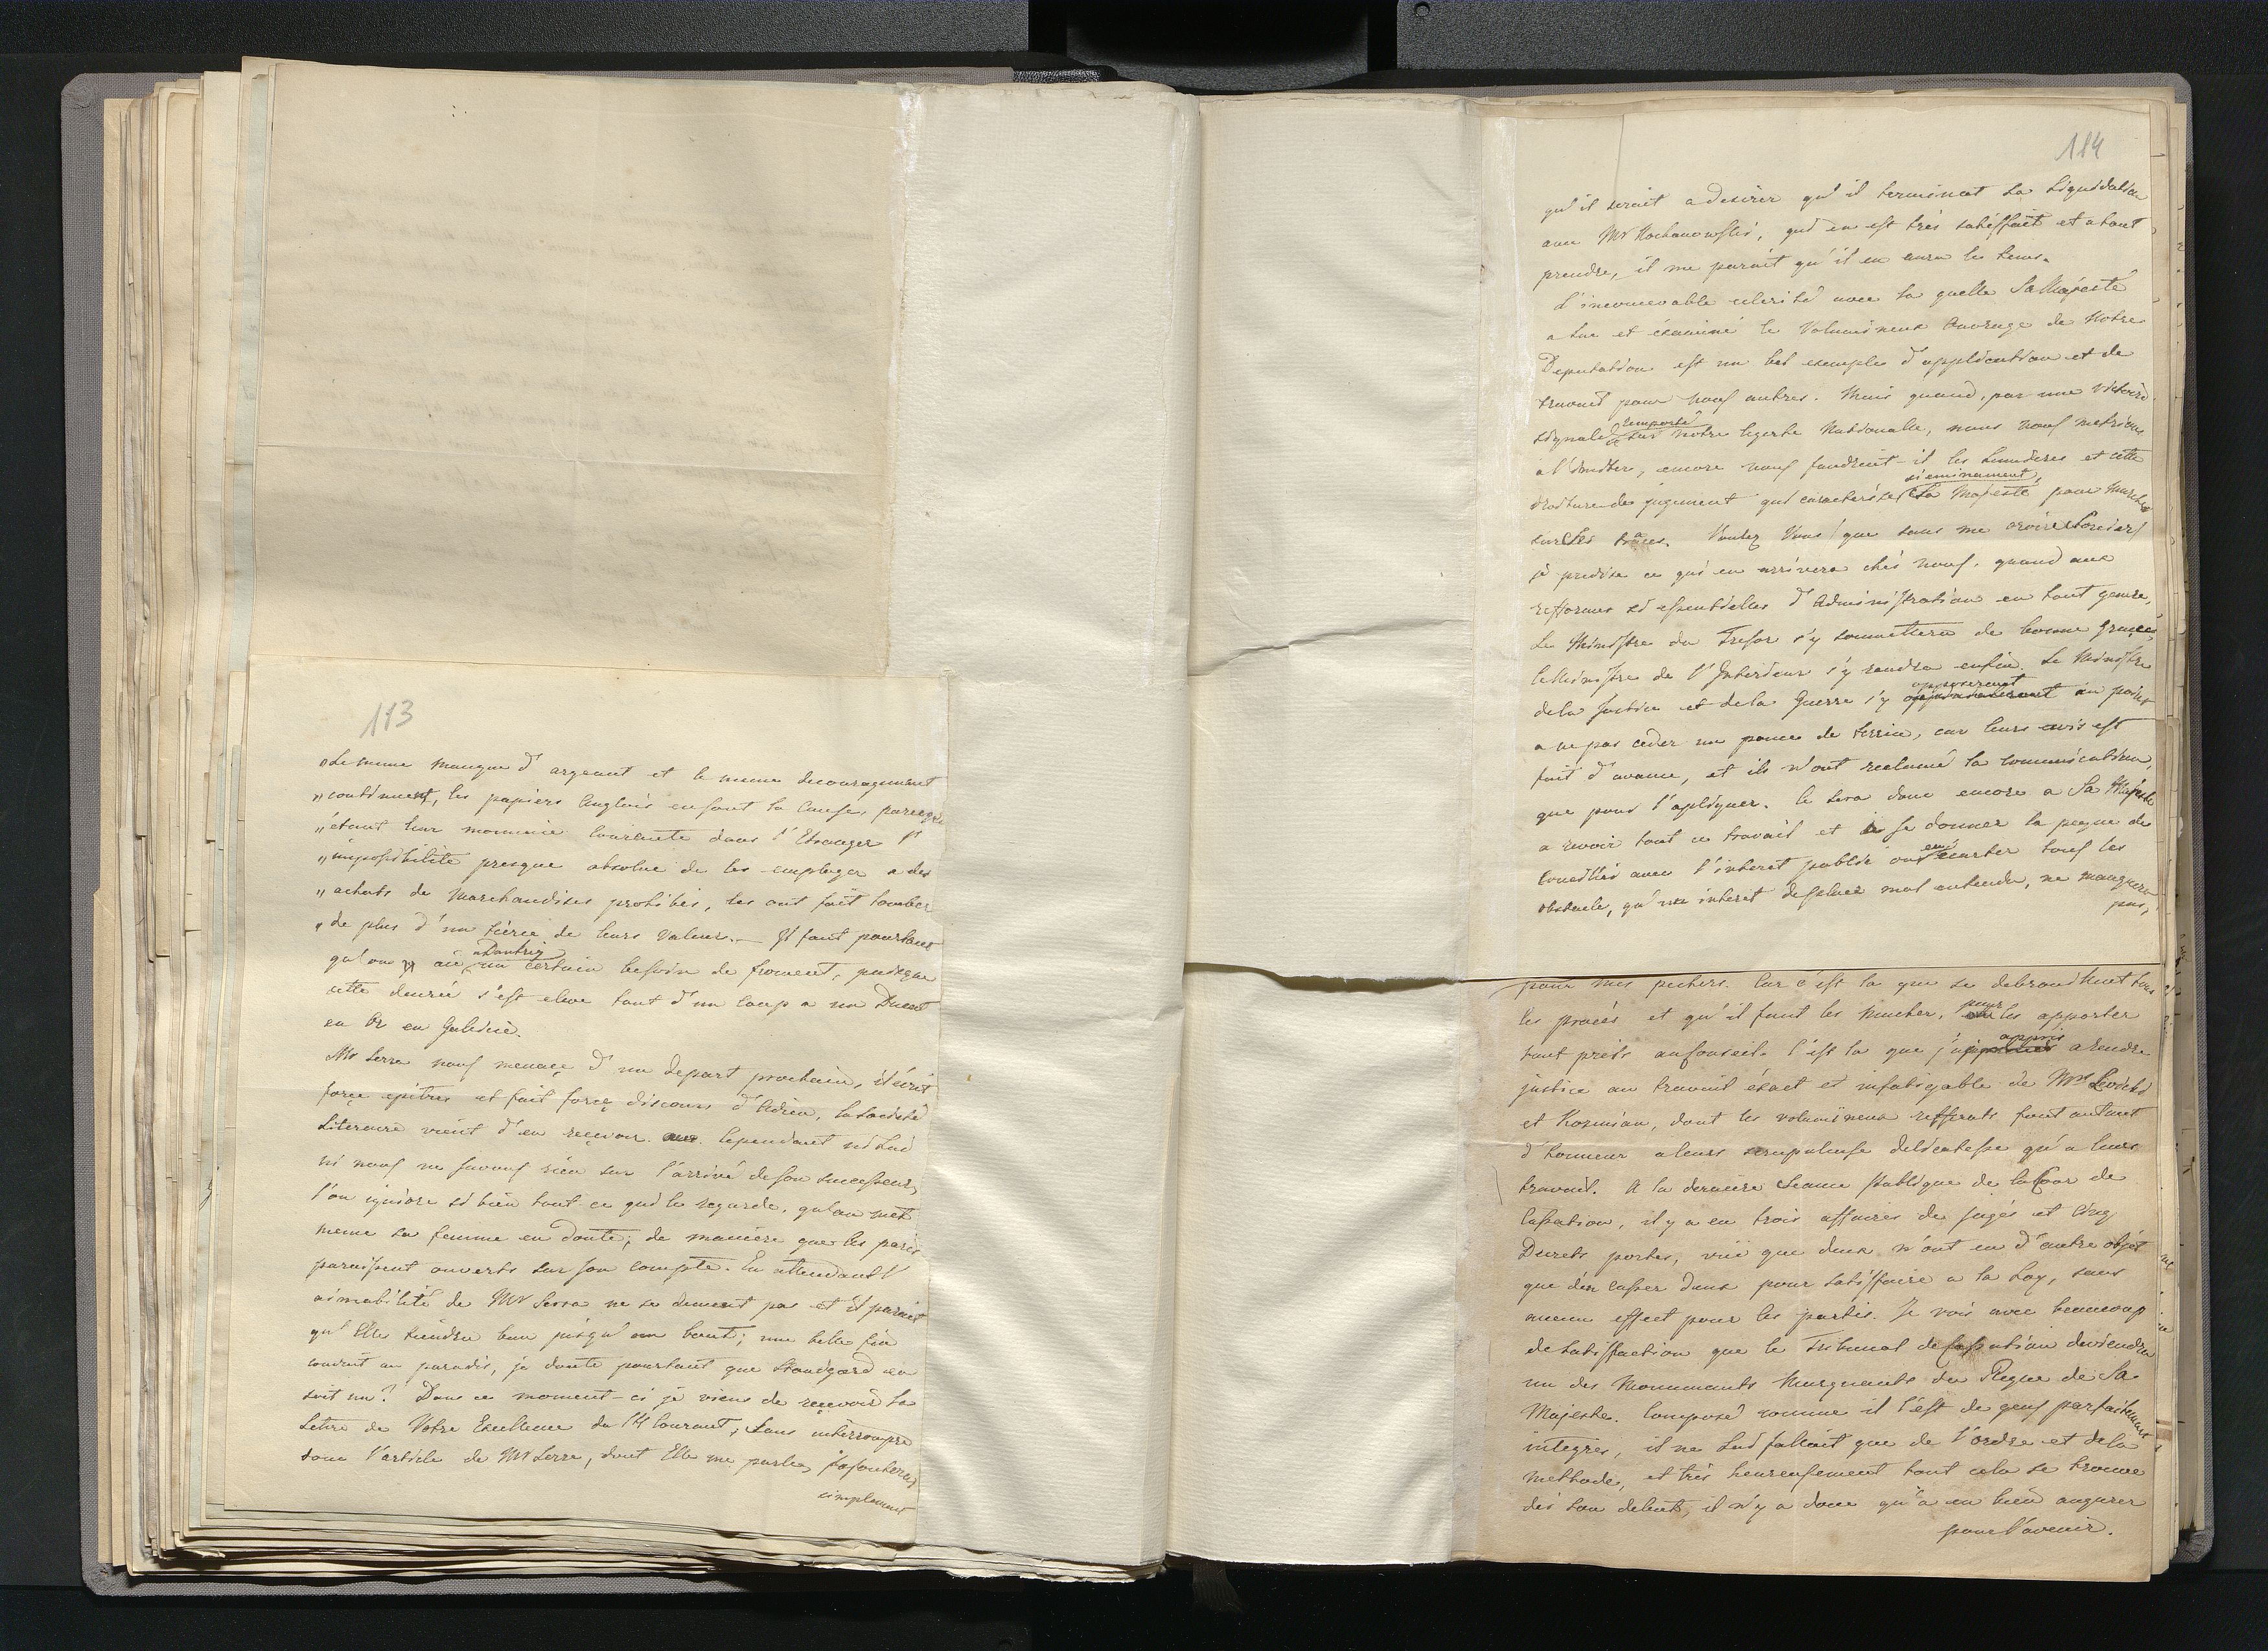 113
„Le meme manque d'argeant et le meme decouragement
„continuent, les papiers Anglais en font la Cause, parceque
„étant leur monnaie Courente dans l'Etranger l'
„impossibilité presque absolue de les employer a des
„achats de Marchandises prohibés, les ont fait tomber
„de plus d'un tièrce de leurs valeur. — Il faut pourtant
qu'on y aie a Dantzig un certain besoin de froment, puisque
cette denrée s'est eleve tout d'un coup a un Ducat
en Or en Galicie.
Mr Serra nous menaçe d'un depart prochain, il écrit
forçe epitres et fait forçe discours d'Adieu, la Societé
Literaire vient d'en reçevoir. Cependant ni Lui
ni nous ne savons rien sur l'arrivé de son successeur,
l'on ignore si bien tout ce qui le regarde, qu'on met
meme sa femme en doute; de maniere que les paris
paraissent ouverts sur son compte. En attendant l'
aimabilité de Mr Serra ne se dement pas et il parait
qu'Elle tiendra bon jusqu'au bout; une belle fin
conduit au paradis, je doute pourtant que Stoudgard en
soit un? Dans ce moment-ci je viens de reçevoir la
Lettre de Votre Excellence du 14 Courant, Sans intérrompre
donc l'article de Mr Serra, dont Elle me parle, j'ajouterai
simplement
114
qu'il serait a desirer qu'il terminat la Liquidation
avec Mr Kochanowski, qui en est très satisffait et a tout
prendre, il me parait qu'il en aura le tems.
L'inconcevable celerité avec la quelle Sa Majesté
a lue et éxaminé le Volumineux Ouvrage de Notre
Deputation est un bel exemple d'application et de
travail pour nous autres. Mais quand, par une victoire
signale remporté sur Notre legerte Nationalle, nous nous metrions
a l'imiter, encore nous faudrait-il les Lumieres et cette
droiture de jugement qui caracterise si eminament Sa Majesté, pour Marcher
sur Ses traces. Voulez Vous! que sans me croire Sorcier!
je predise ce qui en arrivera chés nous. quand aux
refformes si essentielles d'Administration en tout genre,
Le Ministre du Tresor s'y soumettera de bonne Graçe,
le Ministre de l'Interieur s'y rendra enfin. Le Ministre
de la Justice et de la Guerre s'y opposeront au point
a ne pas ceder un pouce de terrein, car leurs avis est
fait d'avance, et ils n'ont reclamé la communication,
que pour l'apliquer. Ce sera donc encore a Sa Majesté
a revoir tout ce travail et a se donner la peyne de
concilier avec l'interet public en ecarter tous les
obstacle, qu'un interet desplacé mal entendu, ne manquera
pas,
pour mes pechers. Car c'est la que se debrouillent tous
les procès et qu'il faut les Macher, pour les apporter
tout prèts au Conseil. C'est la que j'appris a rendre
justice au travail éxact et infatigable de Mrs Lewicki
et Kozmian, dont les volumineux refferats font autant
d'honneur a leurs scrupuleuse delicatesse qu'a leurs
travail. A la derniere Seance Publique de la Cour de
Cassation, il y a eu trois affaires de jugés et Cinq
Decrets portes, vuë que deux n'ont eu d'autre objet
que d'en casser deux pour satisffaire a la Loy, sans
aucun effect pour les partis. Je vois avec beaucoup
de satisffaction que le Tribunal de Cassation deviendra
un des Monumants Marquants du Regne de Sa
Majeste. Composé comme il l'est de gens parfaitement
integres, il ne Lui fallait que de l'ordre et de la
methode, et très heureusement tout cela se trouve
dès son debut, il n'y a donc qu'a en bien augurer
pour l'avenir.